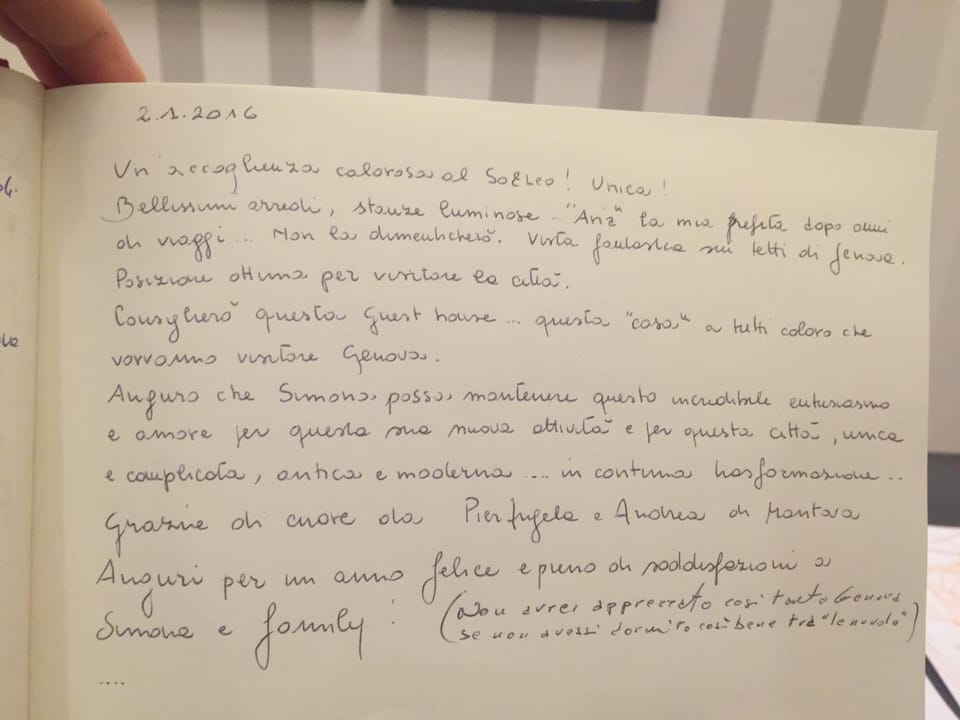 2.1.2016
Un'accoglienza calorosa al SoLeo! Unica!
Bellissimi arredi, stanze luminose.. "Aria" la mia preferita dopo anni
di viaggi... Non la dimenticherò. Vista fantastica sui tetti di Genova.
Posizione ottima per visitare la città.
Consiglierò questa guest house... questa "casa" a tutti coloro che
vorranno visitare Genova.
Auguro che Simona possa mantenere questo incredibile entusiasmo
e amore per questa sua nuova attività e per questa città, unica
e complicata, antica e moderna.... in continua trasformazione..
Grazie di cuore da Pier Angela e Andrea di Mantova
Auguri per un anno felice e pieno di soddisfazioni a
Simona e family! (Non avrei apprezzato così tanto Genova
se non avessi dormito così bene tra "le nuvole")
....